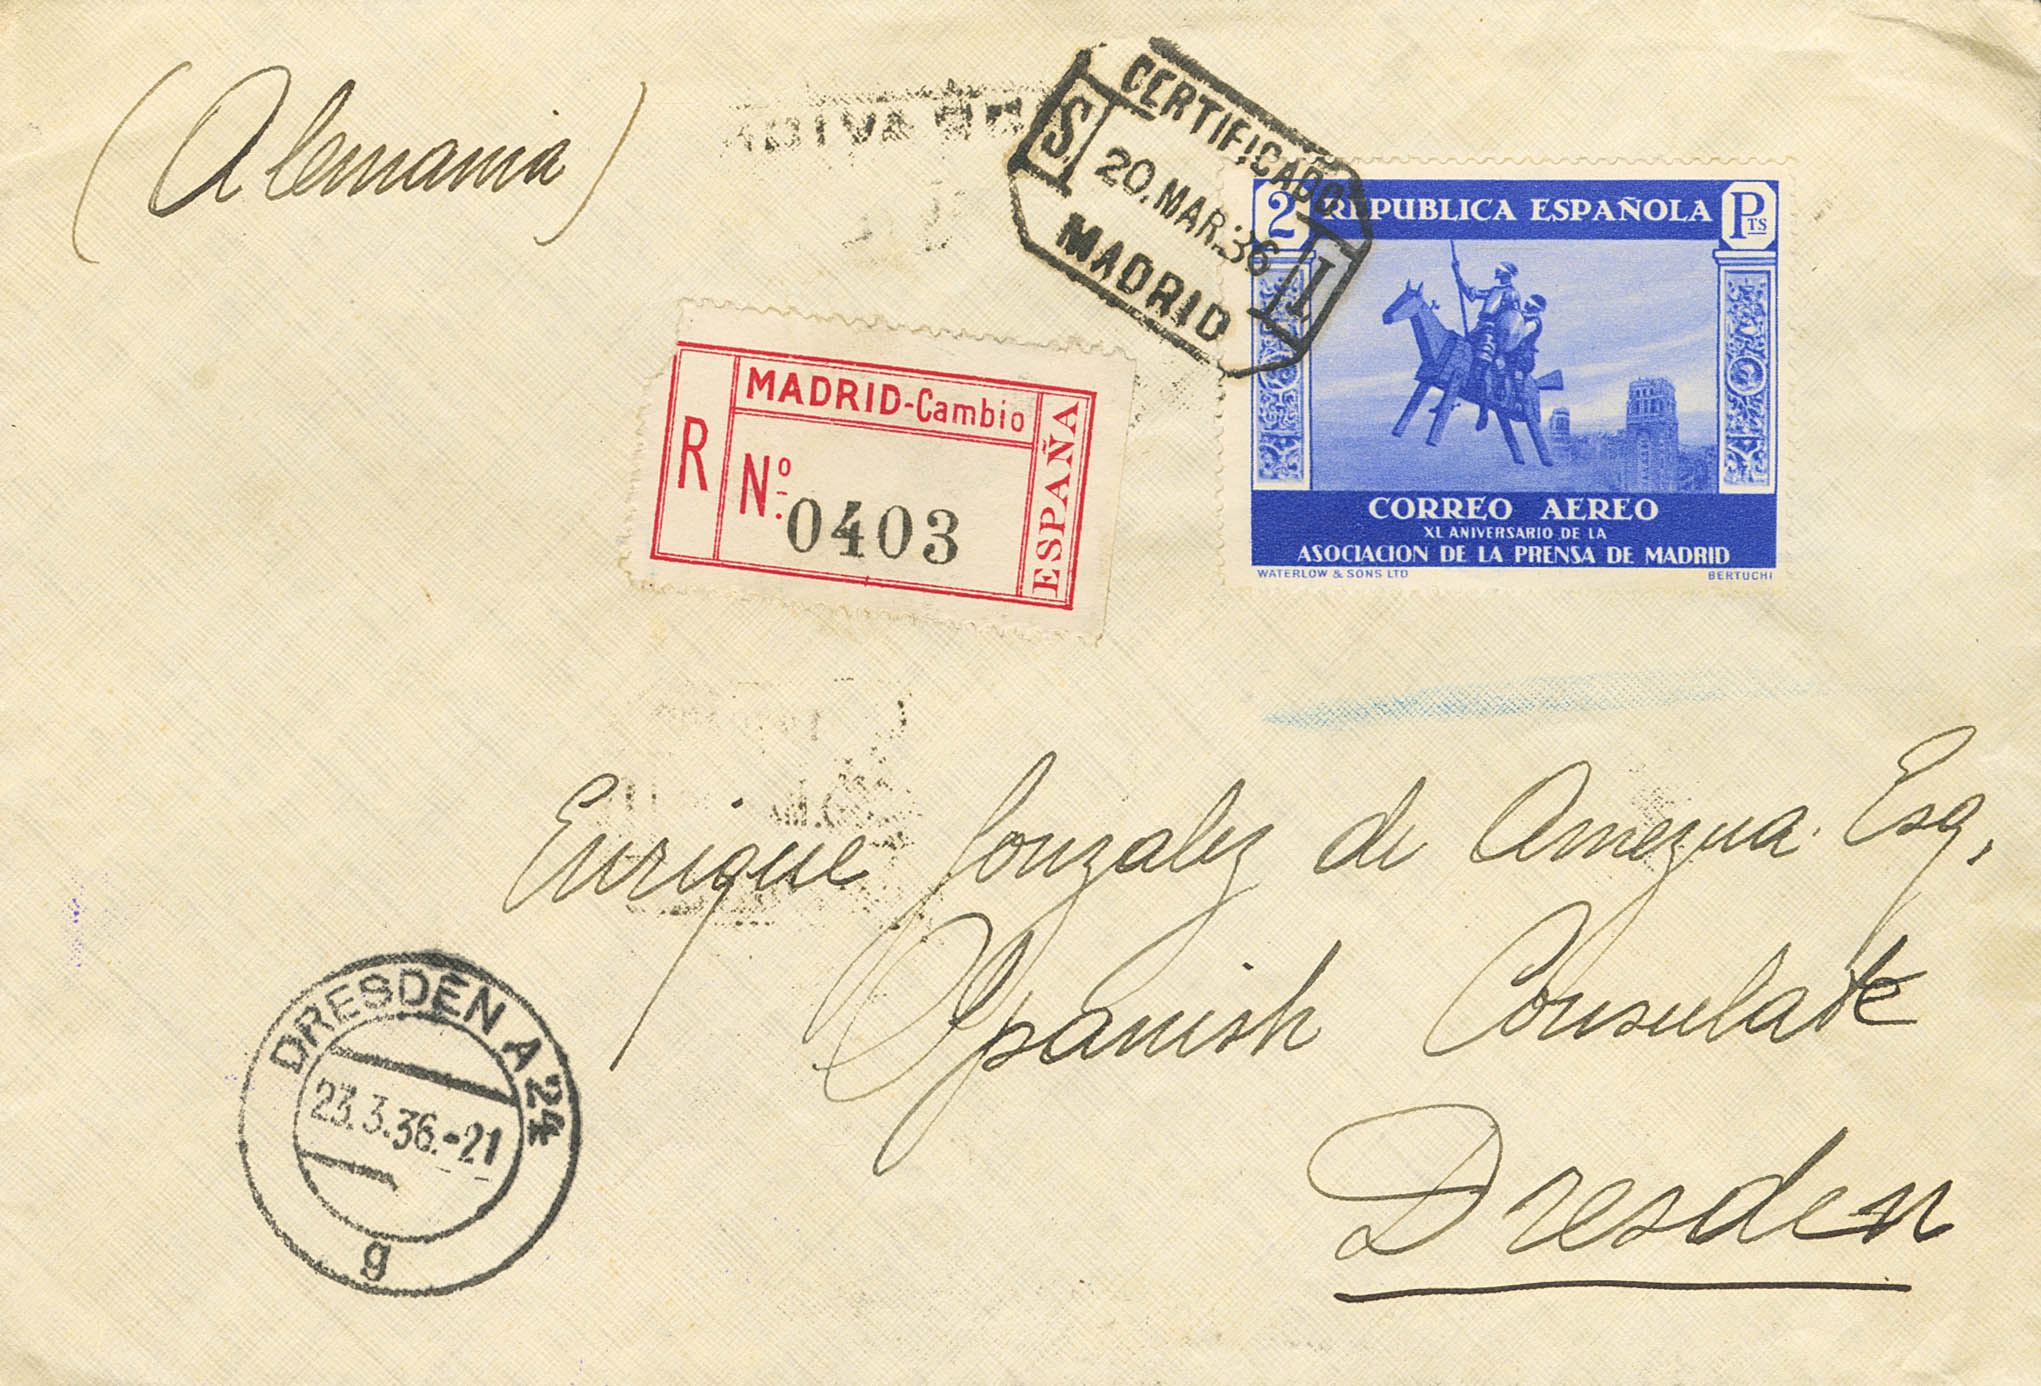 (Alemania)
CERTIFICADO
S. I
20.MAR.36
MADRID
2 REPUBLICA ESPAÑOLA PTS
CORREO AEREO
XL ANIVERSARIO DE LA
ASOCIACION DE LA PRENSA DE MADRID
WATERLOW & SONS LTD BERTUCHI
R
MADRID-Cambio
Nº. 0403
ESPAÑA
Enrique Gonzalez de Amezua. Esq,
Spanish Consulate
Dresden
DRESDEN A 24
23.3.36.-21
g